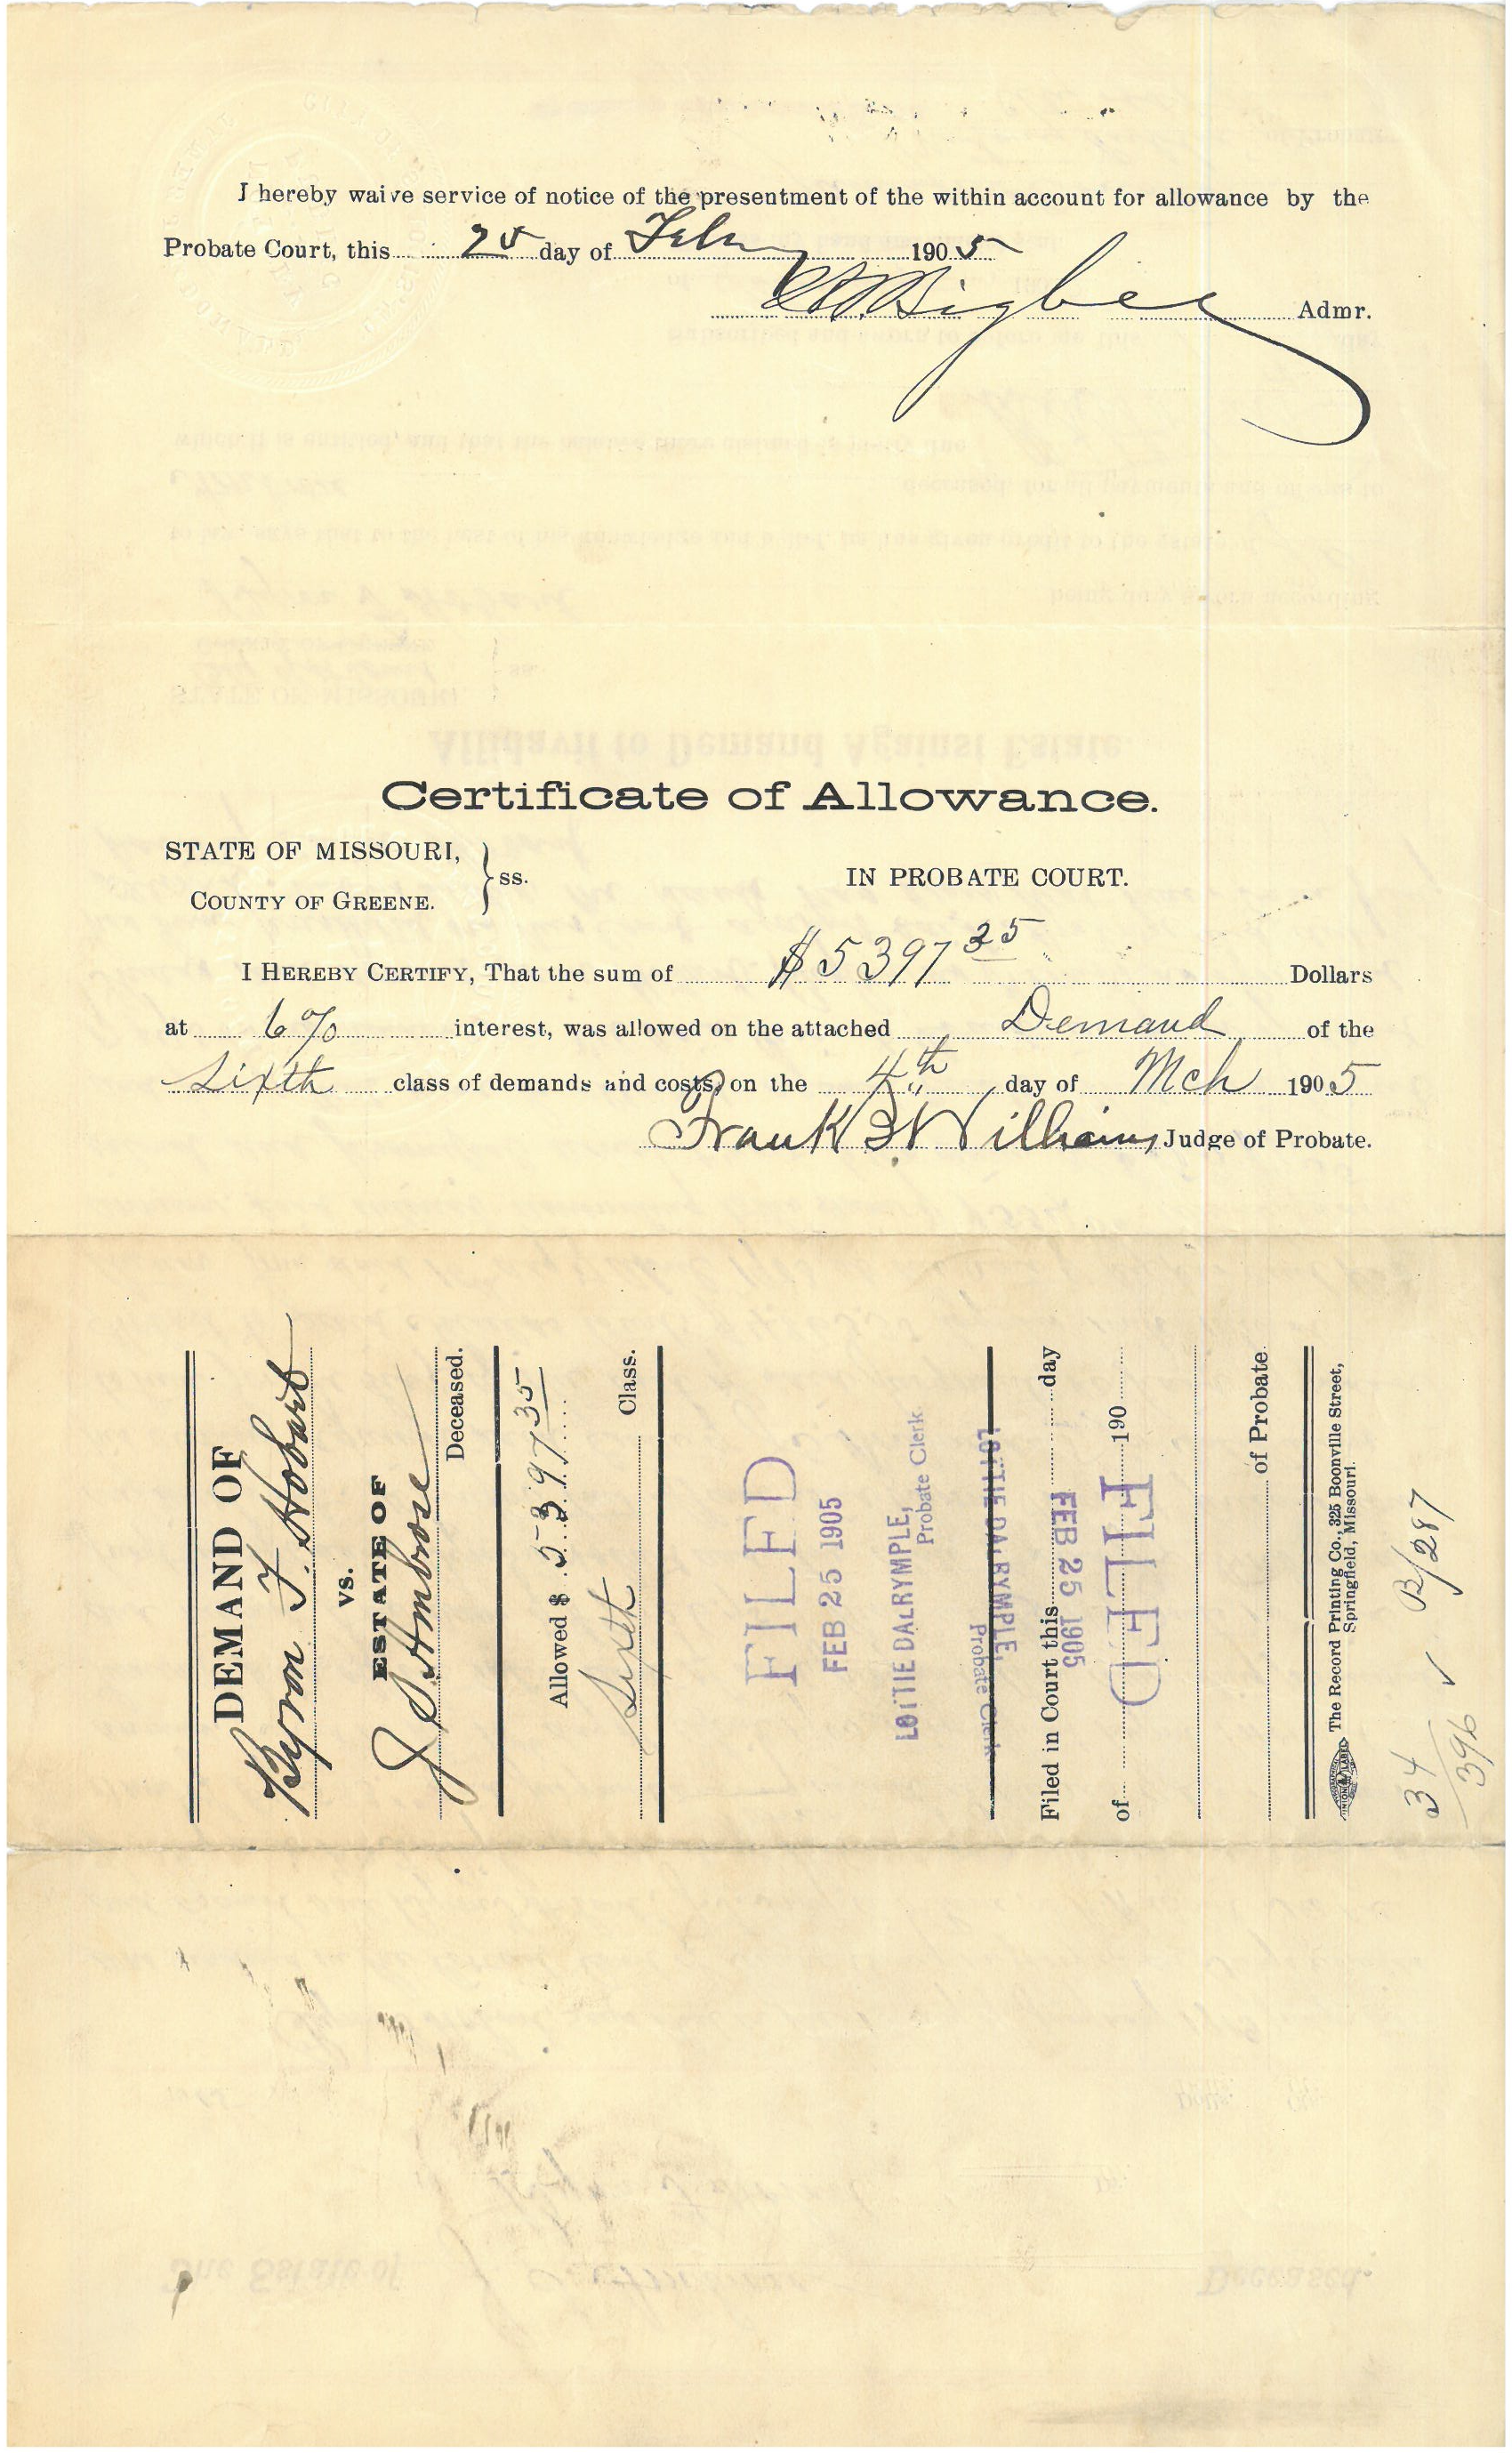 I hereby waive service of notice of the presentment of the within account for allowance by the
Probate Court, this 25 day of Feby 1905
Bigbee Admr.
Certificate of Allowance.
STATE OF MISSOURI,
COUNTY OF GREENE. } ss.
IN PROBATE COURT.
I HEREBY CERTIFY, That the sum of $5397 35 Dollars
at 6% interest, was allowed on the attached Demand of the
Sixth class of demands and costs, on the 4th day of Mch 1905
Frank B Williams, Judge of Probate.
DEMAND OF
Byron F. Hobart
vs.
ESTATE OF
J. S. Ambrose
Deceased.
Allowed $ 5397 35
Sixth Class.
FILED
FEB 25 1905
LOTTIE DALRYMPLE,
Probate Clerk
LOTTIE DALRYMPLE,
Probate Clerk
Filed in Court this day
FEB 25 1905
of 190
FILED
of Probate
The Record Printing Co., 325 Boonville Street,
Springfield, Missouri.
34 B/287
396 ✓